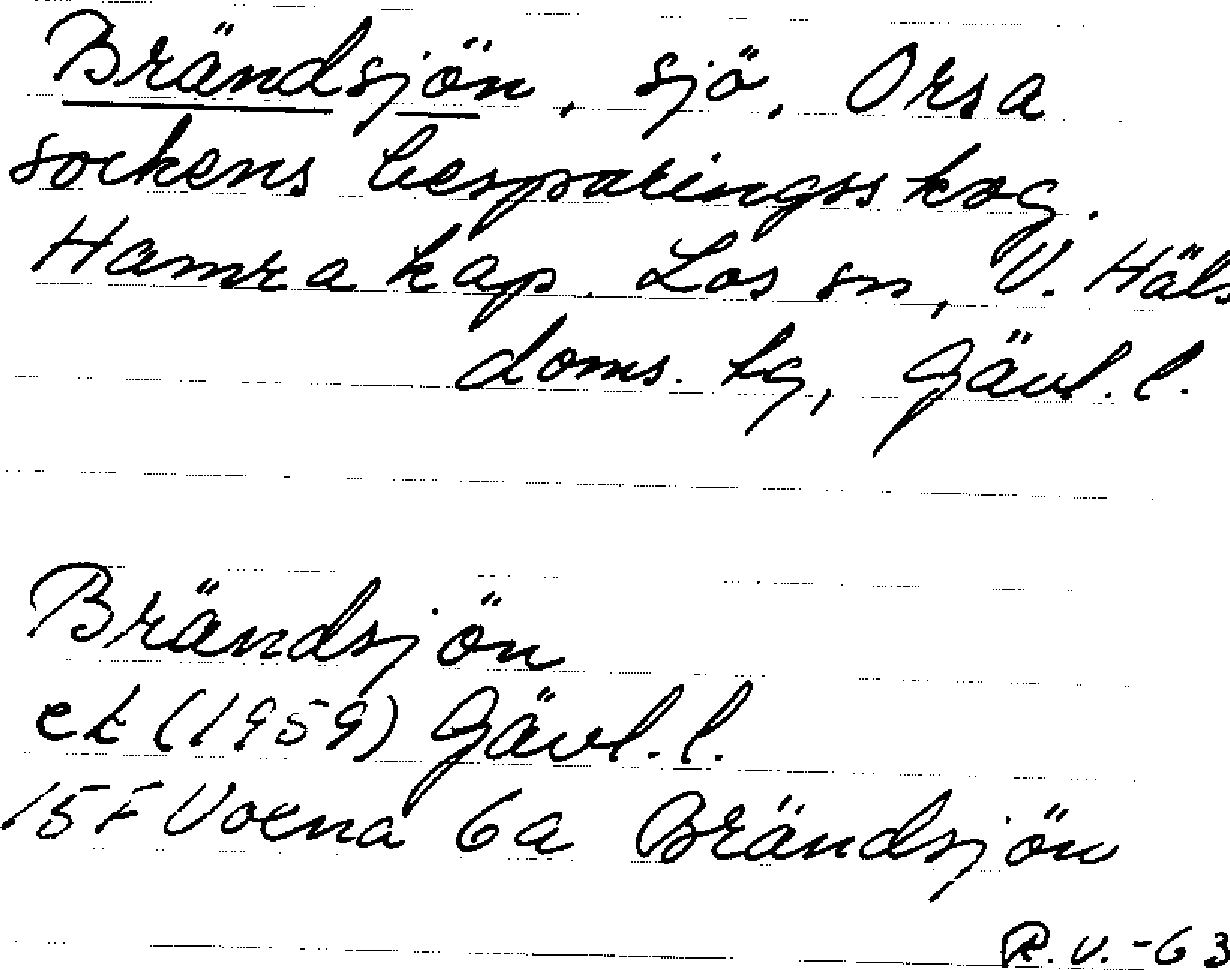 Brändsjön, sjö, Orsa
sockens besparingsskog.
Hamra kap. Los sn, V. Häls
doms. tg, Gävl. l.
Brändsjön
ek (1959) Gävl. l.
15F Voxna 6a Brändsjön
R.V. -63